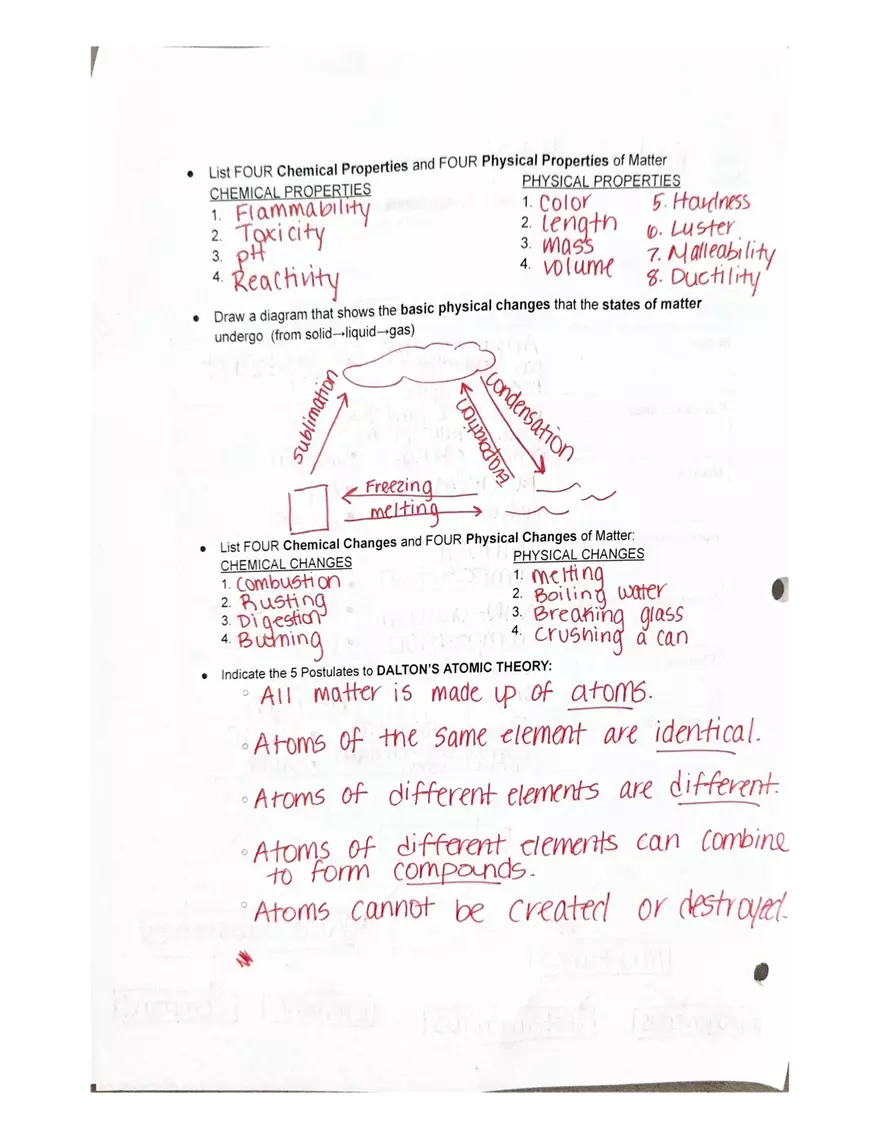 • List FOUR Chemical Properties and FOUR Physical Properties of Matter
CHEMICAL PROPERTIES
1. Flammability
2. Toxicity
3. pH
4. Reactivity
PHYSICAL PROPERTIES
1. Color
2. length
3. mass
4. volume
5. Hardness
6. Luster
7. Malleability
8. Ductility
• Draw a diagram that shows the basic physical changes that the states of matter
undergo (from solid→liquid→gas)
sublimation
condensation
Evaporation
Freezing
melting
• List FOUR Chemical Changes and FOUR Physical Changes of Matter:
CHEMICAL CHANGES
1. Combustion
2. Rusting
3. Digestion
4. Burning
PHYSICAL CHANGES
1. melting
2. Boiling water
3. Breaking glass
4. Crushing a can
• Indicate the 5 Postulates to DALTON'S ATOMIC THEORY:
◦ All matter is made up of atoms.
◦ Atoms of the same element are identical.
◦ Atoms of different elements are different.
◦ Atoms of different elements can combine
to form compounds.
◦ Atoms cannot be created or destroyed.